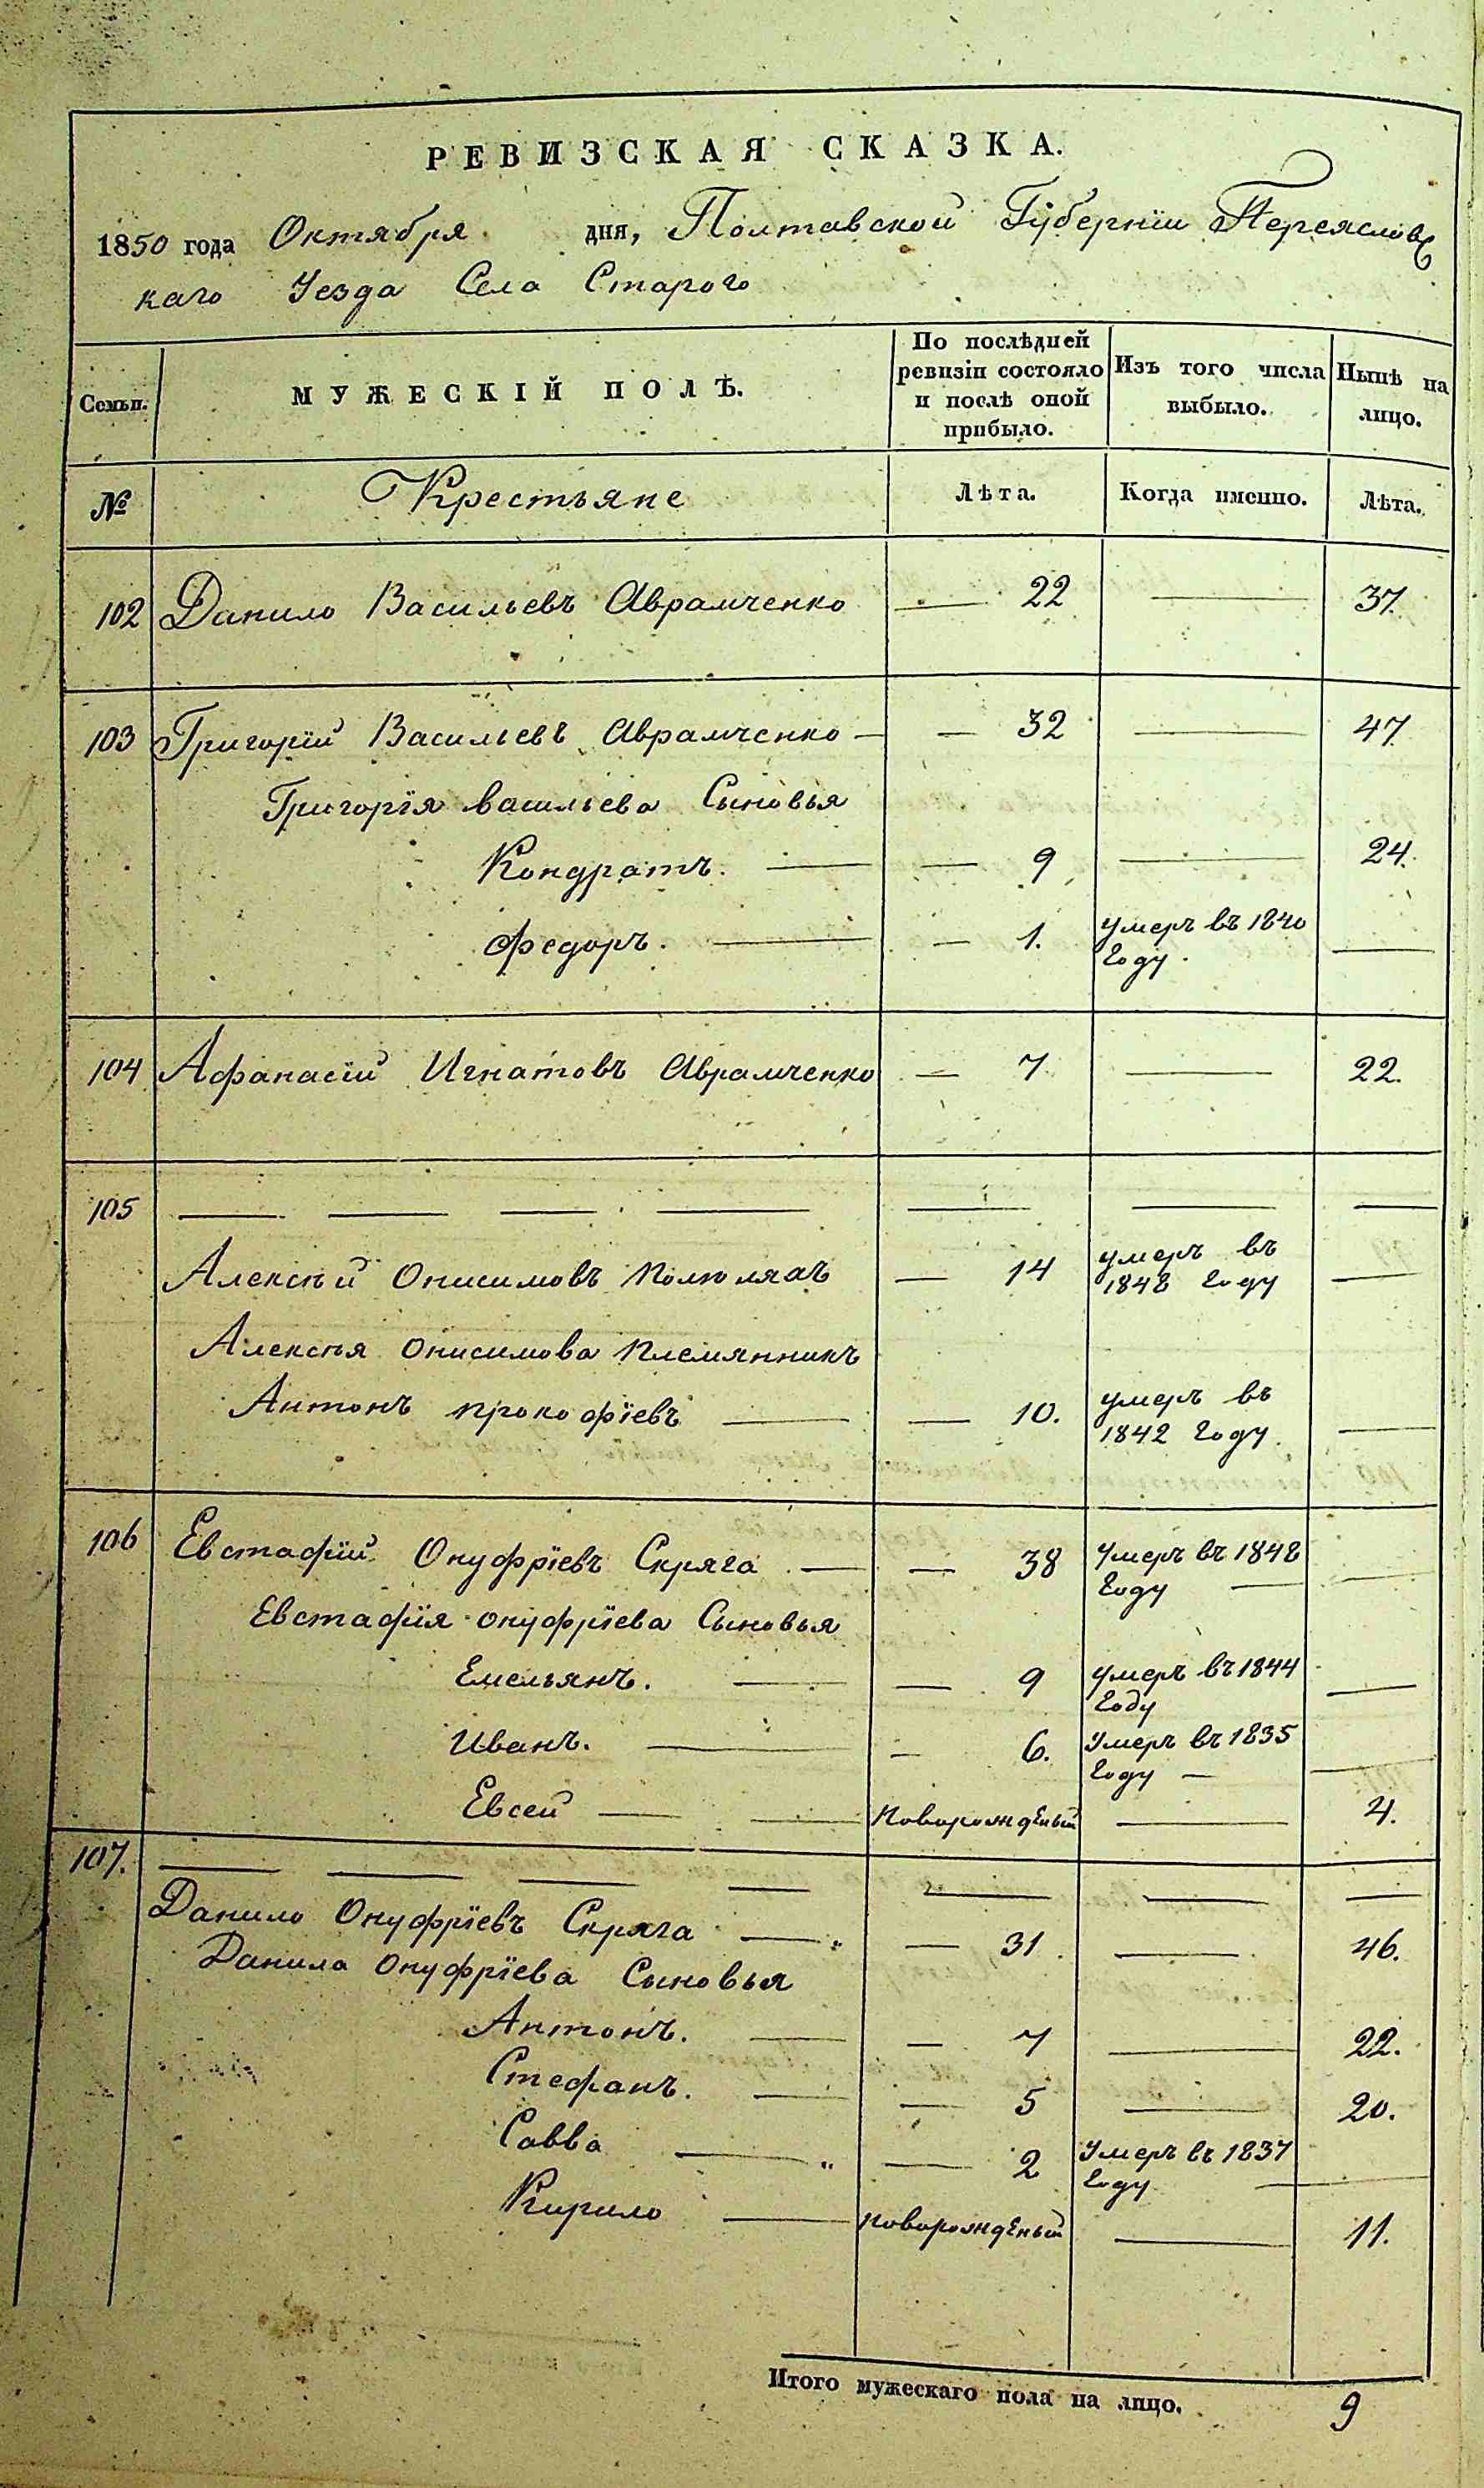 РЕВИЗСКАЯ СКАЗКА.
1850 года Октября дня, Полтавской Губернїи Переясловс
каго Уезда Села Старого
Семьи. МУЖЕСКІЙ ПОЛЪ. По послѣдней ревизіи состояло и послѣ оной прибыло. Изъ того числа выбыло. Нынѣ на лицо.
№ Крестьяне Лѣта. Когда именно. Лѣта.
102 Данило Васильевъ Аврамченко — 22 — 37.
103 Григорїй Васильевъ Аврамченко — — 32 — 47.
Григорїя васильева Сыновья
Кондратъ. — — 9 — 24.
Федоръ. — — 1. умеръ въ 1840 году. —
104 Афанасїй Игнатовъ Аврамченко — 7 — 22.
105 — — — — — — —
Алексѣй Онисимовъ — 14 умеръ въ 1848 году —
Алексѣя Онисимова племянникъ
Антонъ прокофїевъ — — 10. умеръ въ 1842 году. —
106 Евстафїй Онуфрїевъ Скряга — — 38 Умеръ въ 1848 году — —
Евстафїя онуфрїева Сыновья
Емельянъ. — — 9 умеръ въ 1844 году —
Иванъ. — — 6. Умеръ въ 1835 году — —
Евсей — — новорожденый — 4.
107. — — — — — — —
Данило Онуфрїевъ Скряга — — 31. — 46.
Данила Онуфрїева Сыновья
Антонъ. — — 7 — 22.
Стефанъ. — — 5 — 20.
Савва — — 2 Умеръ въ 1837 году —
Кирило — новорожденый — 11.
Итого мужескаго пола на лицо. 9